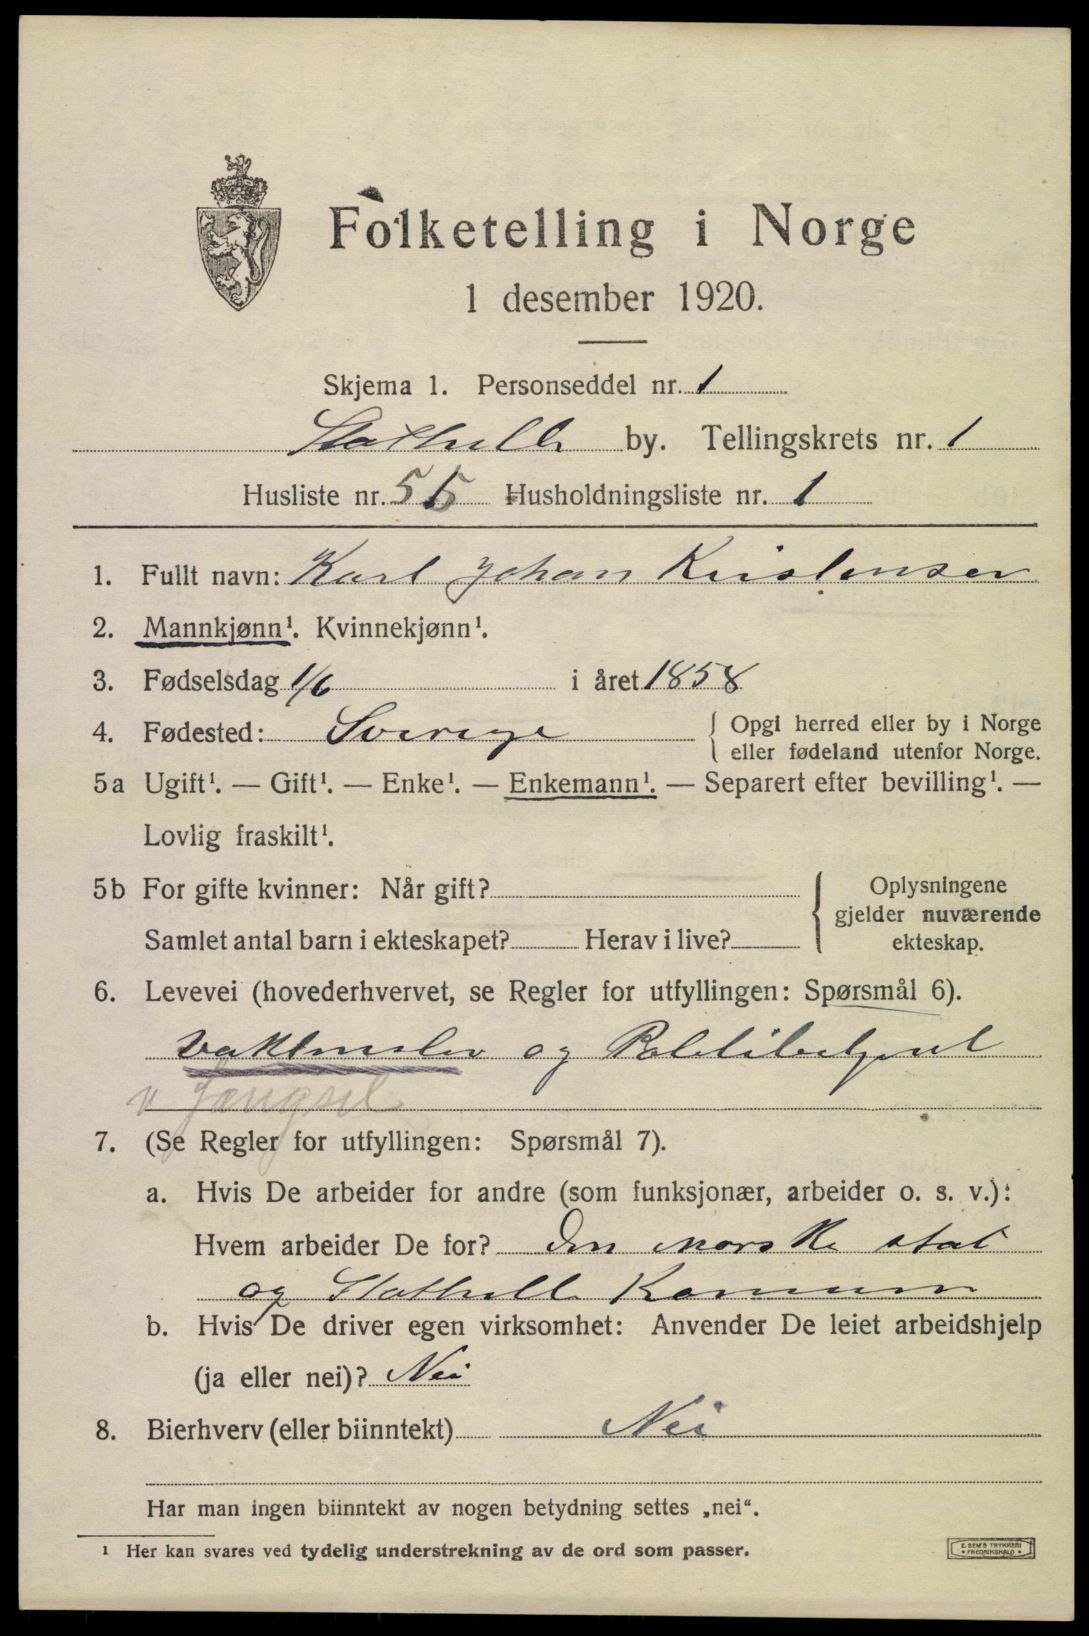 Folketelling i Norge
1 desember 1920.
Skjema 1. Personseddel nr. 1
Stathelle by. Tellingskrets nr. 1
Husliste nr. 55 Husholdningsliste nr. 1
1. Fullt navn: Karl Johan Kristensen
2. Mannkjønn¹. Kvinnekjønn¹.
3. Fødselsdag 1/6 i året 1858
4. Fødested: Sverige { Opgi herred eller by i Norge
eller fødeland utenfor Norge.
5a Ugift¹. — Gift¹. — Enke¹. — Enkemann¹. — Separert efter bevilling¹. —
Lovlig fraskilt¹.
5b For gifte kvinner: Når gift?
Samlet antal barn i ekteskapet? Herav i live?
{ Oplysningene
gjelder nuværende
ekteskap.
6. Levevei (hovederhvervet, se Regler for utfyllingen: Spørsmål 6).
Vaktmester og Politibetjent
v Fængsel
7. (Se Regler for utfyllingen: Spørsmål 7).
a. Hvis De arbeider for andre (som funksjonær, arbeider o. s. v.):
Hvem arbeider De for? den norske stat
og Stathelle Komune
b. Hvis De driver egen virksomhet: Anvender De leiet arbeidshjelp
(ja eller nei)? Nei
8. Bierhverv (eller biinntekt) Nei
Har man ingen biinntekt av nogen betydning settes „nei“.
¹ Her kan svares ved tydelig understrekning av de ord som passer.
E. SEM'S TRYKKERI
• FREDRIKSHALD •